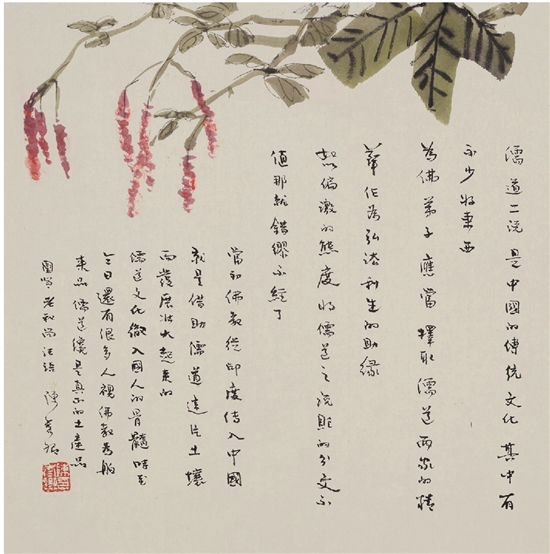 儒道二說是中國的傳統文化其中有
不少好東西
為佛弟子應當擇取儒道兩家的精
華作為弘法利生的助緣
偏激的態度將儒道之說貶的分文不
值那就錯繆不經了
當初佛教從印度傳入中國
就是借助儒道這片土壤
而發展壯大起來的
儒道文化徹入國人的骨髓時至
今日還有很多人視佛教為舶
來品儒道纔是真正的土產品
老和尚法語